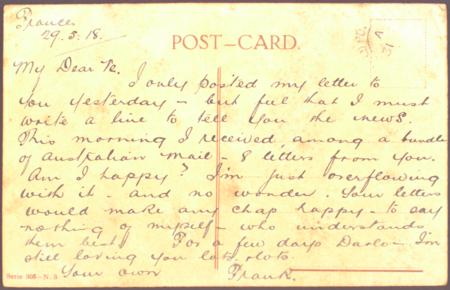 France
29.5.18.
POST-CARD.
My Dear Te.
I only posted my letter to
you yesterday - but feel that I must
write a line to tell you the news.
This morning I received, among a bundle
of Australian mail - 8 letters from you.
Am I happy? I'm just overflowing
with it - and no wonder. Your letters
would make any chap happy - to say
nothing of myself - who understands
them best. For a few days I'm
still loving you lots & lots.
Your own Frank.
Serie 305 - N. 3